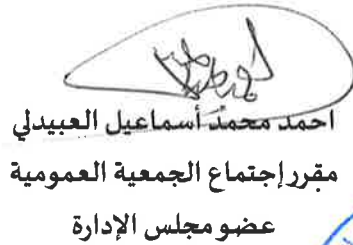 احمد محمد أسماعيل العبيدلي
مقرر إجتماع الجمعية العمومية
عضو مجلس الإدارة